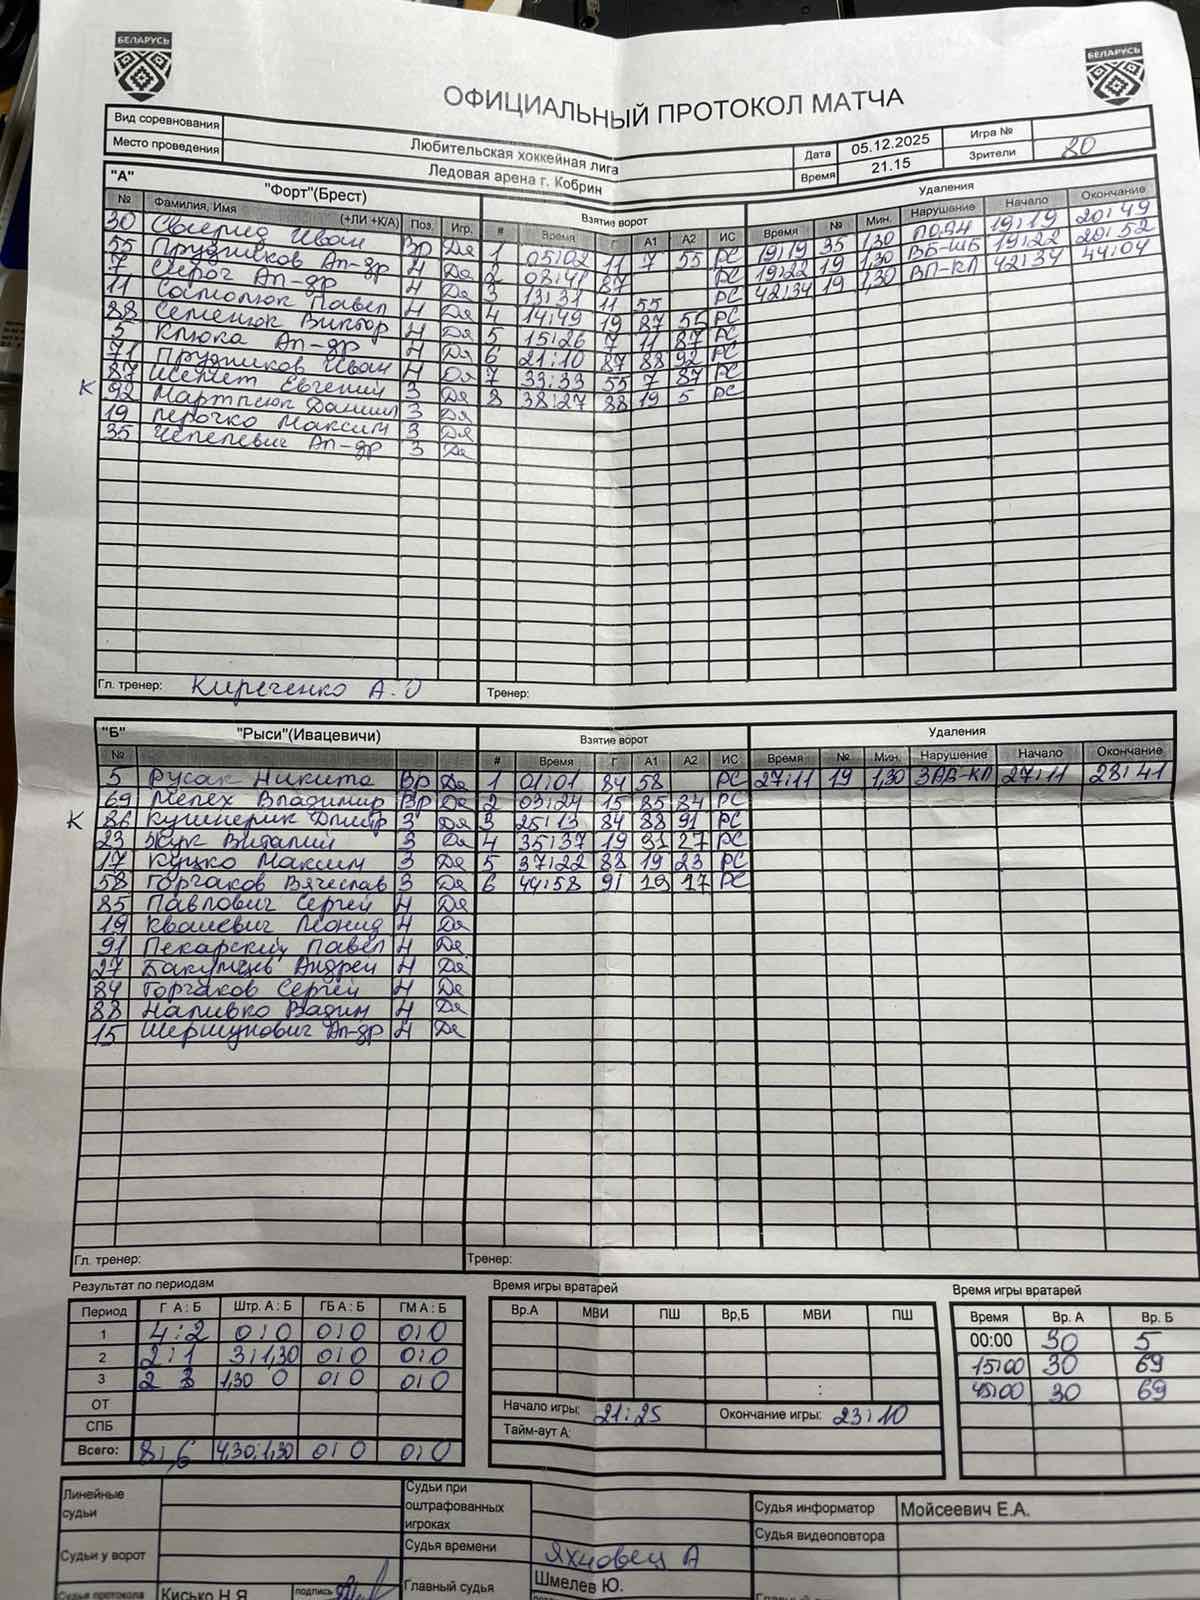 БЕЛАРУСЬ
БЕЛАРУСЬ
ОФИЦИАЛЬНЫЙ ПРОТОКОЛ МАТЧА
Вид соревнования Любительская хоккейная лига Дата 05.12.2025 Игра №
Место проведения Ледовая арена г. Кобрин Время 21.15 Зрители 80
"А" "Форт"(Брест) Взятие ворот Удаления
№ Фамилия, Имя (+ЛИ +К/А) Поз. Игр. # Время Г А1 А2 ИС Время № Мин. Нарушение Начало Окончание
30 Свирид Иван Вр Да 1 05:02 11 7 55 РС 19:19 35 1,30 19:19 20:49
55 Прудников Ал-др Ч Да 2 08:41 87 РС 19:22 19 1,30 ВБ-ШБ 19:22 20:52
7 Ал-др Ч Да 3 13:31 11 55 РС 42:34 19 1,30 ВП-КЛ 42:34 44:04
11 Самолюк Павел Ч Да 4 14:49 19 87 55 РС
88 Семенюк Виктор Ч Да 5 15:26 7 11 87 РС
5 Клюка Ал-др Ч Да 6 21:10 87 88 92 РС
71 Прудников Иван Ч Да 7 33:33 55 7 87 РС
87 Евгений 3 Да 8 38:27 88 19 5 РС
К 92 Мартынюк Даниил 3 Да
19 Максим 3 Да
35 Чепелевич Ал-др 3 Да
Гл. тренер: Киреченко А.О Тренер:
"Б" "Рыси"(Ивацевичи) Взятие ворот Удаления
№ # Время Г А1 А2 ИС Время № Мин. Нарушение Начало Окончание
5 Русак Никита Вр Да 1 01:01 84 58 РС 27:11 19 1,30 ЗАБ-КЛ 27:11 28:41
69 Мелех Владимир Вр Да 2 03:24 15 85 84 РС
К 86 Кушнерик Дмитр 3 Да 3 25:13 84 88 91 РС
23 Жук Виталий 3 Да 4 35:37 19 91 27 РС
17 Куцко Максим 3 Да 5 37:22 88 19 23 РС
58 Горчаков Вячеслав 3 Да 6 44:58 91 19 17 РС
85 Павлович Сергей Ч Да
19 Квашевич Леонид Ч Да
91 Пекарский Павел Ч Да
27 Андрей Ч Да
84 Горчаков Сергей Ч Да
88 Наливко Вадим Ч Да
15 Шершунович Ал-др Ч Да
Гл. тренер: Тренер:
Результат по периодам Время игры вратарей Время игры вратарей
Период Г А : Б Штр. А : Б ГБ А : Б ГМ А : Б Вр.А МВИ ПШ Вр,Б МВИ ПШ Время Вр. А Вр. Б
1 4:2 0:0 0:0 0:0 00:00 30 5
2 2:1 3:1,30 0:0 0:0 15:00 30 69
3 2 3 1,30 0 0:0 0:0 : 45:00 30 69
ОТ Начало игры: 21:25 Окончание игры: 23:10
СПБ Тайм-аут А:
Всего: 8:6 4,30:1,30 0:0 0:0
Линейные судьи Судьи при оштрафованных игроках Судья информатор Мойсеевич Е.А.
Судья видеоповтора
Судьи у ворот Судья времени Яхновец А
Судья протокола Кисько Н.Я. подпись Главный судья Шмелев Ю.